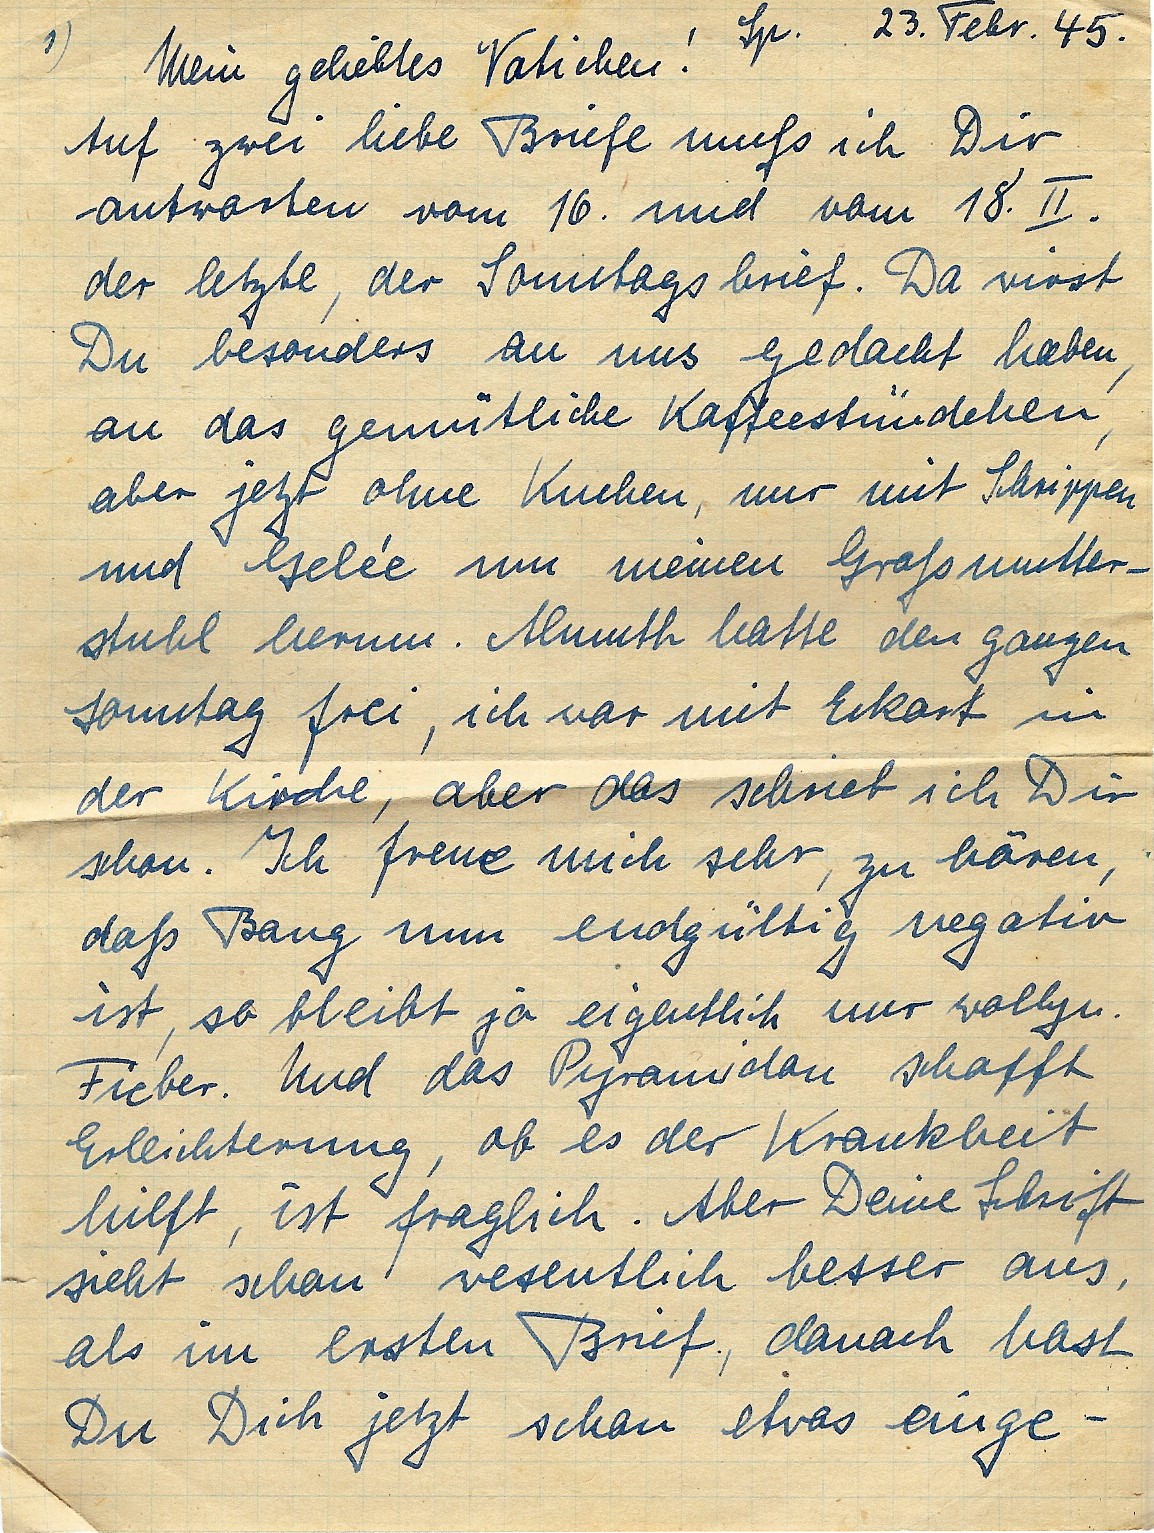 1) Mein geliebtes Vatichen! Sp. 23. Febr. 45.
Auf zwei liebe Briefe muß ich Dir
antworten vom 16. und vom 18. II.
der letzte, der Sonntagsbrief. Da wirst
Du besonders an uns gedacht haben,
an das gemütliche Kaffeestündchen,
aber jetzt ohne Kuchen, nur mit Schrippen
und Gelée um meinen Großmutter-
stuhl herum. Almuth hatte den ganzen
Sonntag frei, ich war mit Eckart in
der Kirche, aber das schrieb ich Dir
schon. Ich freue mich sehr, zu hören,
daß Bang nun endgültig negativ
ist, so bleibt ja eigentlich nur wolhyn.
Fieber. Und das Pyramidon schafft
Erleichterung, ob es der Krankheit
hilft, ist fraglich. Aber Deine Schrift
sieht schon wesentlich besser aus,
als im ersten Brief, danach hast
Du Dich jetzt schon etwas einge-